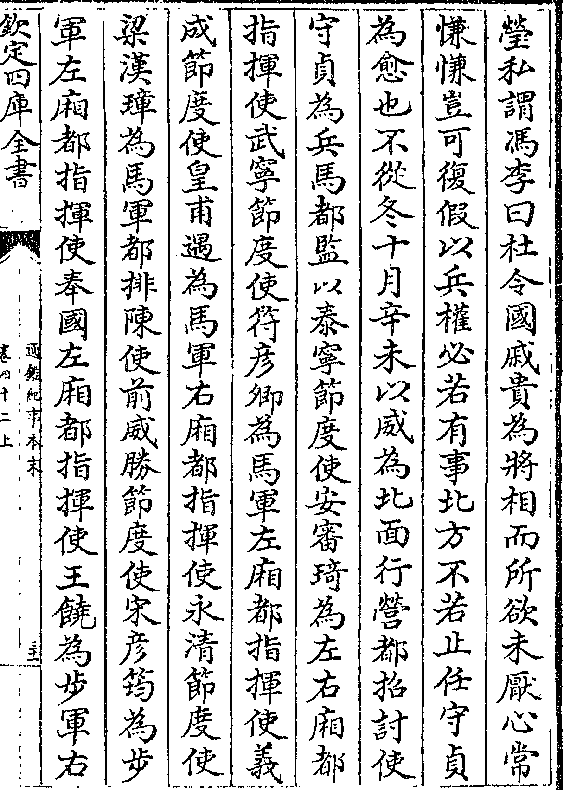 瑩私謂馮李曰杜令國戚貴為將相而所欲未厭心常
慊慊豈可復假以兵權必若有事北方不若止任守貞
為愈也不從冬十月辛未以威為北面行營都招討使
守貞為兵馬都監以泰寧節度使安審琦為左右廂都
指揮使武寧節度使符彦卿為馬軍左廂都指揮使義
成節度使皇甫遇為馬軍右廂都指揮使永清節度使
梁漢璋為馬軍都排陳使前威勝節度使宋彦筠為步
軍左廂都指揮使奉國左廂都指揮使王饒為步軍右
欽定四庫全書
通鑑紀事本末
卷四十二上